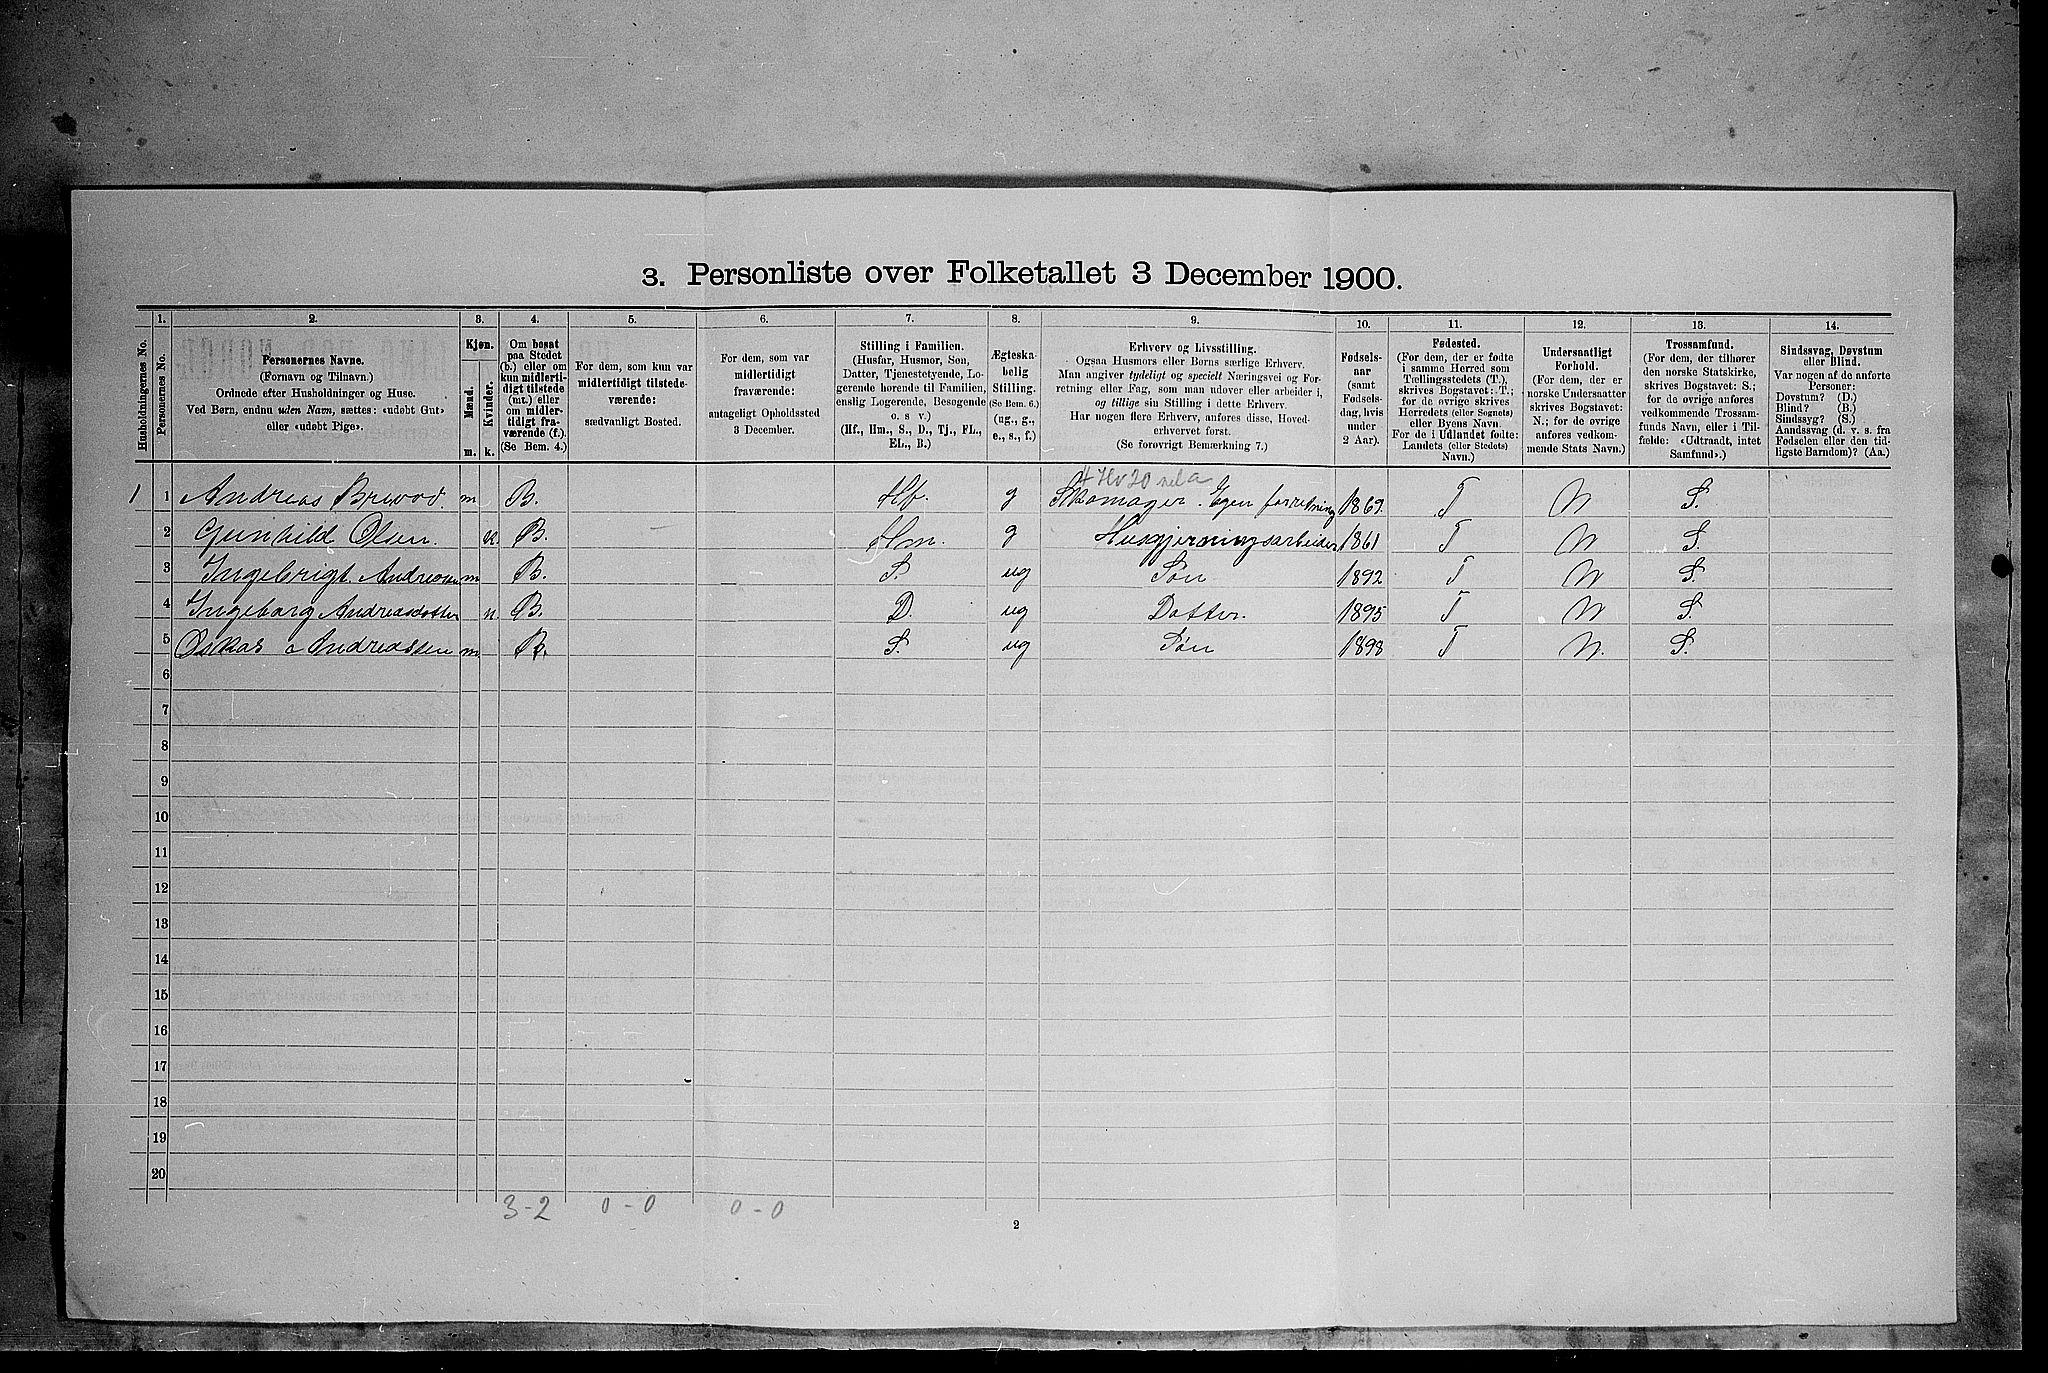 3. Personliste over Folketallet 3 December 1900.
1. 2. 3. 4. 5. 6. 7. 8. 9. 10. 11. 12. 13. 14.
Husholdningernes No.
Personernes No.
Personernes Navne.
(Fornavn og Tilnavn.)
Ordnede efter Husholdninger og Huse.
Ved Børn, endnu uden Navn, sættes: «udøbt Gut»
eller «udøbt Pige».
Kjøn.
Mænd.
Kvinder.
m. k.
Om bosat
paa Stedet
(b.) eller om
kun midlerti-
digt tilstede
(mt.) eller
om midler-
tidigt fra-
værende (f.).
(Se Bem. 4.)
For dem, som kun var
midlertidigt tilstede-
værende:
sædvanligt Bosted.
For dem, som var
midlertidigt
fraværende:
antageligt Opholdssted
3 December.
Stilling i Familien.
(Husfar, Husmor, Søn,
Datter, Tjenestetyende, Lo-
gerende hørende til Familien,
enslig Logerende, Besøgende
o. s v.)
(Hf., Hm., S., D., Tj., FL.,
EL., B.)
Ægteska-
belig
Stilling.
(Se Bem. 6.)
(ug., g.,
e., s., f.)
Erhverv og Livsstilling.
Ogsaa Husmors eller Børns særlige Erhverv.
Man angiver tydeligt og specielt Næringsvei og For-
retning eller Fag, som man udøver eller arbeider i,
og tillige sin Stilling i dette Erhverv.
Har nogen flere Erhverv, anføres disse, Hoved-
erhvervet først.
(Se forøvrigt Bemærkning 7.)
Fødsels-
aar
(samt
Fødsels-
dag, hvis
under
2 Aar).
Fødested.
(For dem, der er fødte
i samme Herred som
Tællingsstedets (T.),
skrives Bogstavet: T.;
for de øvrige skrives
Herredets (eller Sognets)
eller Byens Navn.
For de i Udlandet fødte:
Landets (eller Stedets)
Navn.)
Undersaatligt
Forhold.
(For dem, der er
norske Undersaatter
skrives Bogstavet:
N.; for de øvrige
anføres vedkom-
mende Stats Navn.)
Trossamfund.
(For dem, der tilhører
den norske Statskirke,
skrives Bogstavet: S.;
for de øvrige anføres
vedkommende Trossam-
funds Navn, eller i Til-
fælde: «Udtraadt, intet
Samfund».)
Sindssvag, Døvstum
eller Blind.
Var nogen af de anførte
Personer:
Døvstum? (D.)
Blind? (B.)
Sindssyg? (S.)
Aandssvag (d. v. s. fra
Fødselen eller den tid-
ligste Barndom)? (Aa.)
1 1 Andreas m B. Hf. g Skomager. Egen forretning 1869. T N S.
2 Gunhild Olsen. k B. Hm. g Husgjerningsarbeider 1861 T N S.
3 Ingebrigt m B. S. ug Søn 1892 T N S.
4 Ingeborg Andreasdatter k B. D. ug Datter. 1895 T N S.
5 Oskar Andreassen m B. S. ug Søn 1898 T N. S.
6
7
8
9
10
11
12
13
14
15
16
17
18
19
20
3-2 0-0 0-0
2